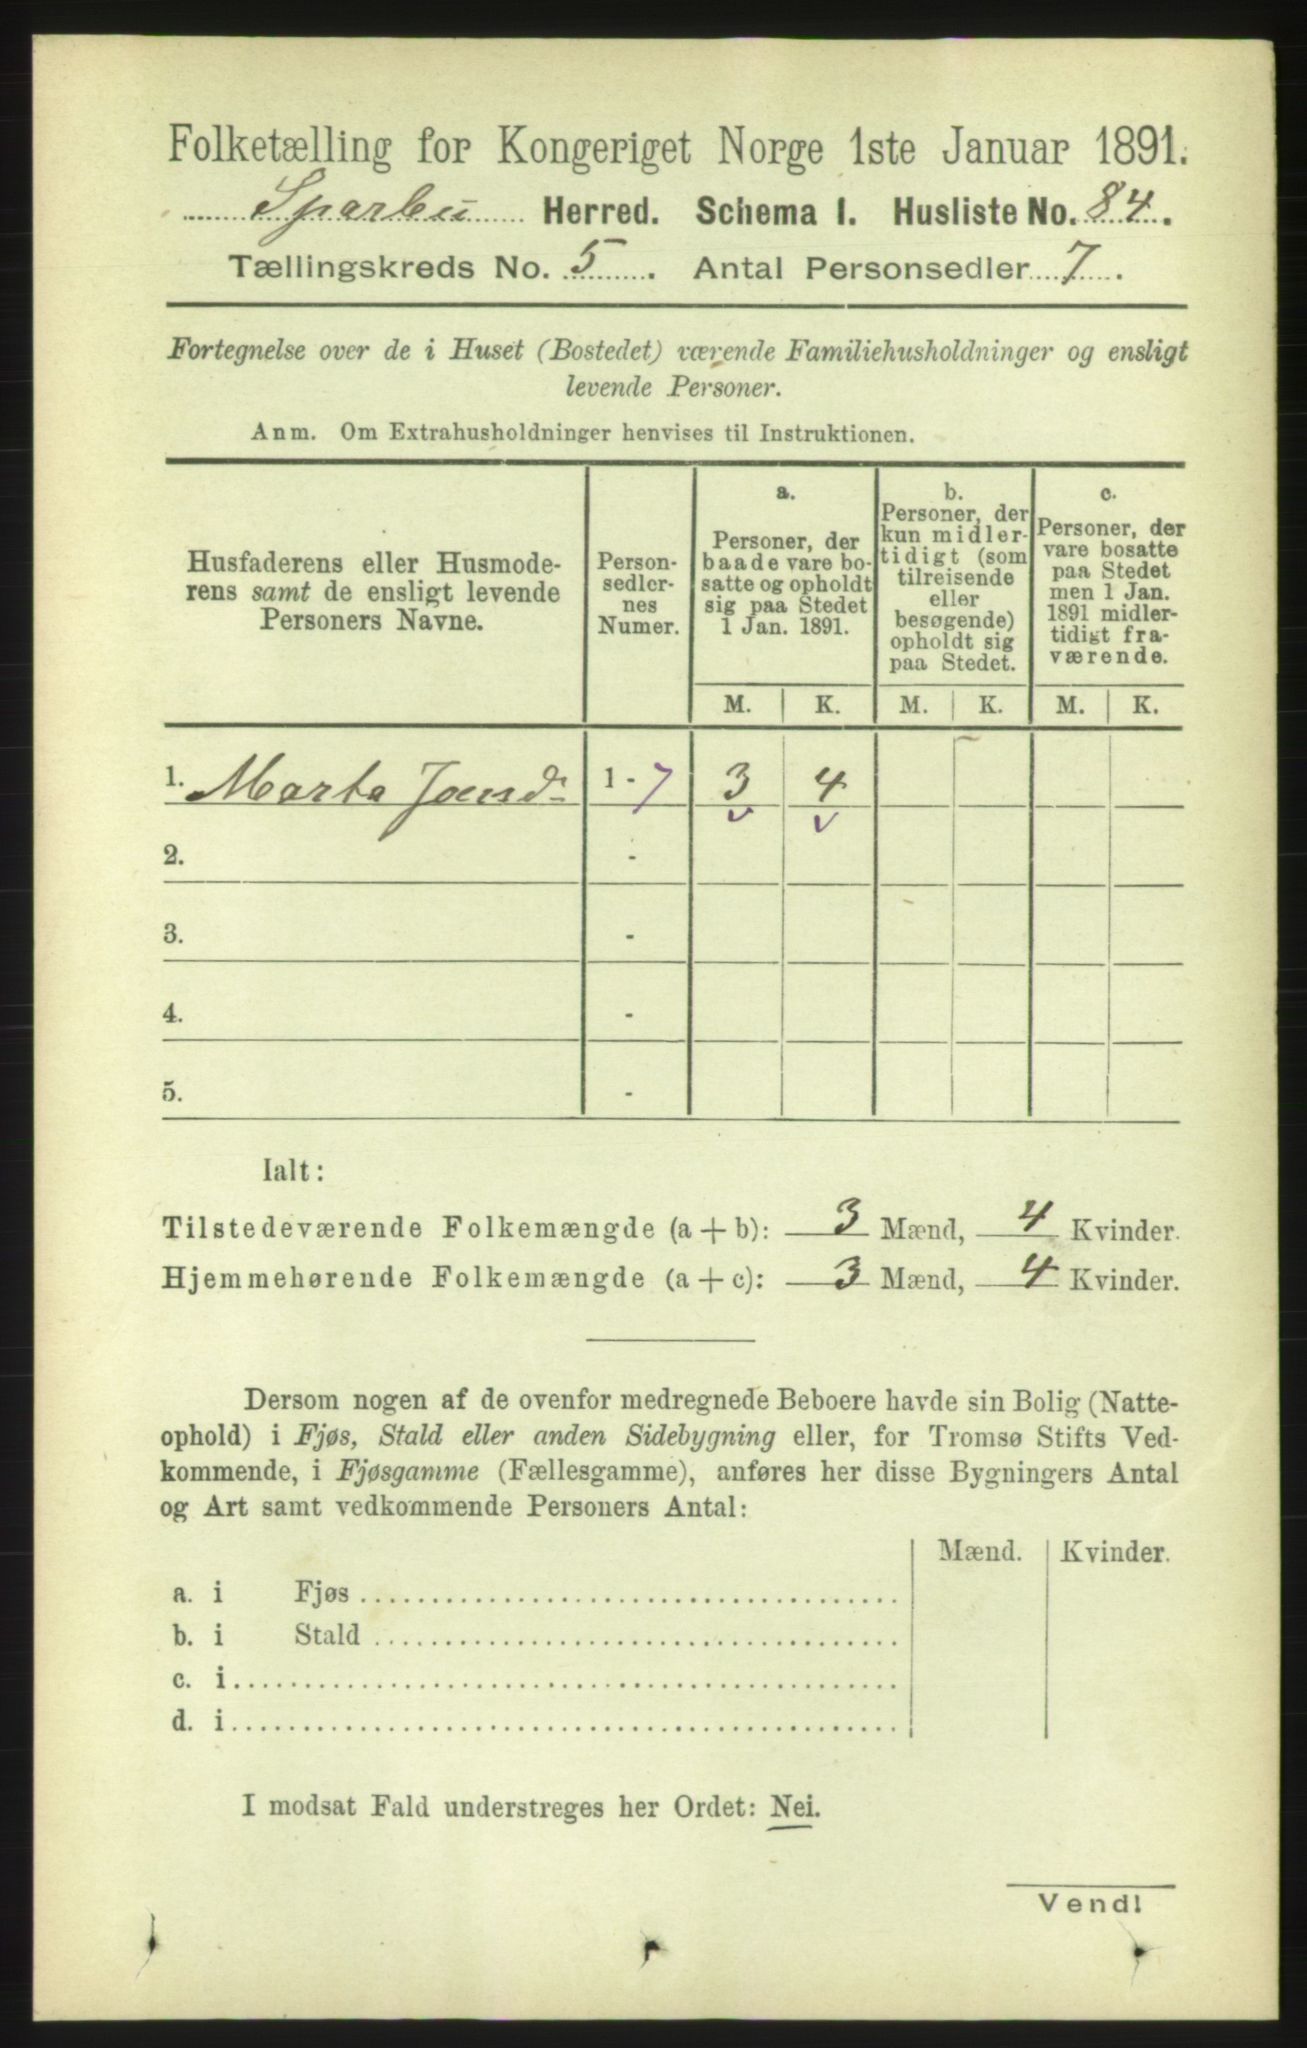 Folketælling for Kongeriget Norge 1ste Januar 1891.
Sparbu Herred. Schema I. Husliste No. 84.
Tællingskreds No. 5. Antal Personsedler 7.
Fortegnelse over de i Huset (Bostedet) værende Familiehusholdninger og ensligt
levende Personer.
Anm. Om Extrahusholdninger henvises til Instruktionen.
Husfaderens eller Husmode-
rens samt de ensligt levende
Personers Navne.
Person-
sedler-
nes
Numer.
a.
Personer, der
baade vare bo-
satte og opholdt
sig paa Stedet
1 Jan. 1891.
b.
Personer, der
kun midler-
tidigt (som
tilreisende
eller
besøgende)
opholdt sig
paa Stedet.
c.
Personer, der
vare bosatte
paa Stedet
men 1 Jan.
1891 midler-
tidigt fra-
værende.
M. K. M. K. M. K.
1. Marta Jensd. 1 - 7 3 4
2. -
3. -
4. -
5. -
Ialt:
Tilstedeværende Folkemængde (a + b): 3 Mænd, 4 Kvinder.
Hjemmehørende Folkemængde (a + c): 3 Mænd, 4 Kvinder.
Dersom nogen af de ovenfor medregnede Beboere havde sin Bolig (Natte-
ophold) i Fjøs, Stald eller anden Sidebygning eller, for Tromsø Stifts Ved-
kommende, i Fjøsgamme (Fællesgamme), anføres her disse Bygningers Antal
og Art samt vedkommende Personers Antal:
Mænd. Kvinder.
a. i Fjøs
b. i Stald
c. i
d. i
I modsat Fald understreges her Ordet: Nei.
Vend!